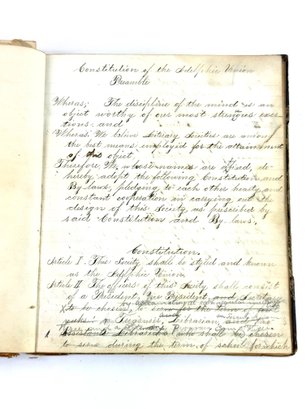 Constitution of the Adelphic Union
Preamble
Whereas; The discipline of the mind is an
object worthy of our most strenuous exer-
tions and
Whereas; We believe Literary Societies are among
the best means employed for the attainment
of this object,
Therefore We whose names are affixed, do
hereby adopt the following Constitution and
By laws, pledging to each other hearty and
constant coöperation in carrying out the
design of this Society as prescribed by
said Constitution and By laws.
Constitution,
Article I. This Society shall be styled and known
as the Adelphic Union,
Article II. The officers of this Society shall consist
of a President, Vice President, and Secretary
to be chosen
Librarian
Assistant Librarian who shall be chosen
to serve during the term of school for which